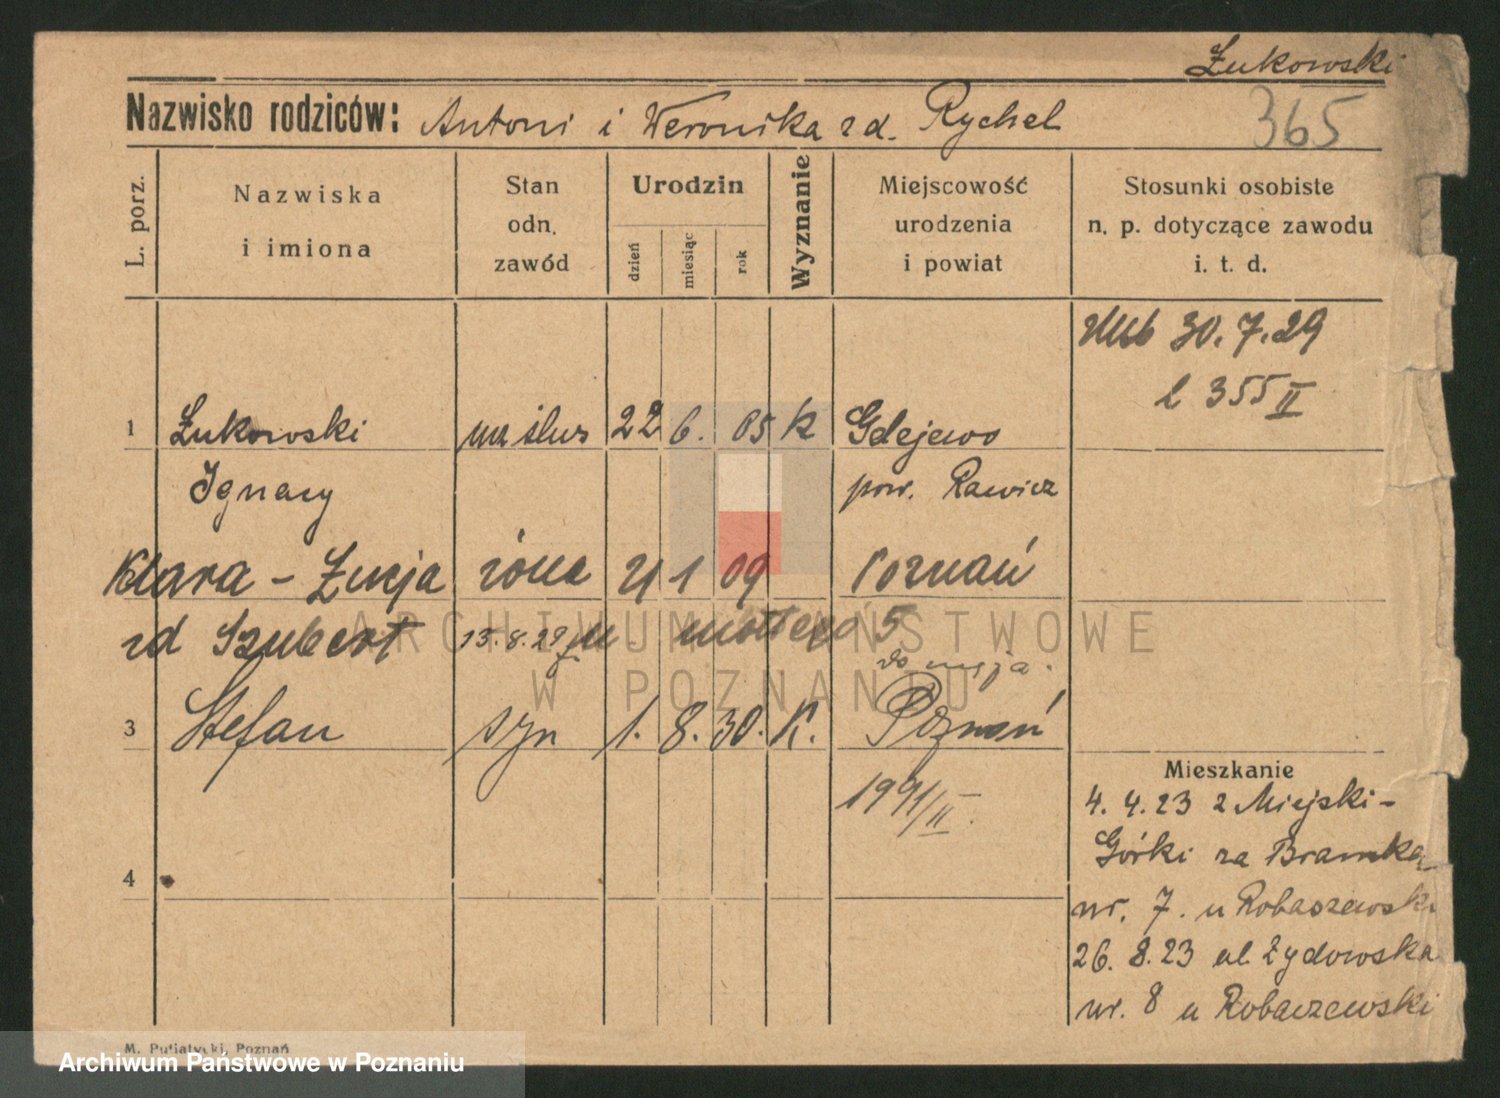 Żukowski
365
Nazwisko rodziców: Antoni i Weronika zd. Rychel
L. porz.
Nazwiska i imiona
Stan odn. zawód
Urodzin
dzień
miesiąc
rok
Wyznanie
Miejscowość urodzenia i powiat
Stosunki osobiste n. p. dotyczące zawodu i. t. d.
30.7.29
l 355 II
1 Żukowski ucz ślus 22 6. 05 k
Ignacy pow. Rawicz
Klara - Łucja żona 21 1 09 Poznań
zd Szubert 13.8.29 5
do męża.
3 Stefan syn 1. 8. 30. K. Poznań
1941/II.
4
Mieszkanie
4.4.23 z Miejski-
Górki za Bramką
nr. 7. u Robaszewski
26.8.23 ul Żydowska
nr. 8 u Robaszewski
M. Putiatycki, Poznań
ARCHIWUM PAŃSTWOWE
W POZNANIU
Archiwum Państwowe w Poznaniu